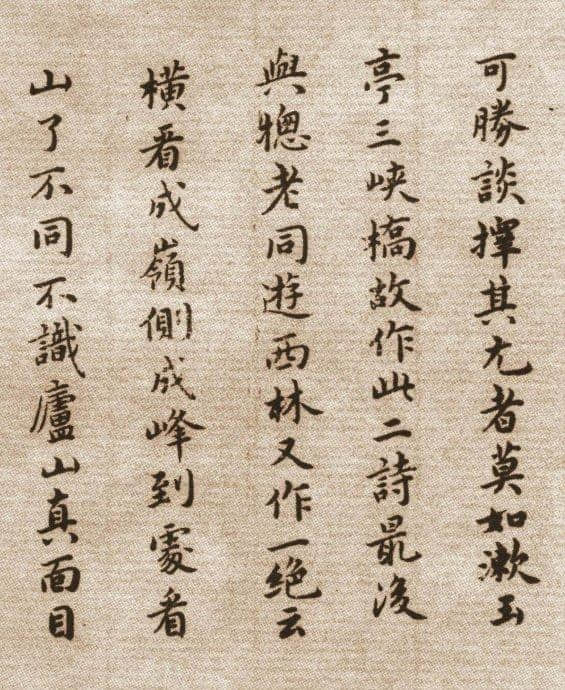 可勝談擇其尤者莫如漱玉
亭三峽橋故作此二詩最後
與摠老同遊西林又作一絕云
橫看成嶺側成峰到處看
山了不同不識廬山真面目